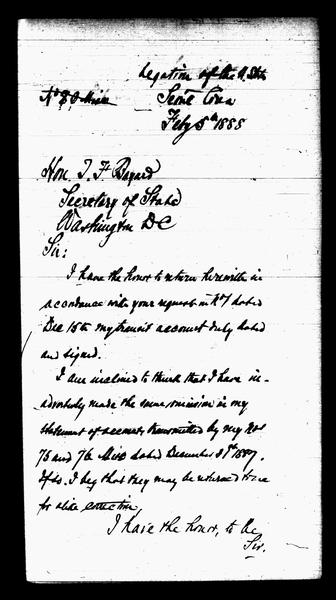 Legation of the U. States
No 80 Misc
Seoul Corea
Feby 5th 1888
Hon. T. F. Bayard
Secretary of State
Washington DC
Sir:
I have the honor to return herewith in
accordance with your request in No 7 dated
Dec 15th my transit account duly dated
and signed.
I am inclined to think that I have in-
advertently made the same omission in my
statement of accounts transmitted by my Nos
75 and 76 Misc dated December 31st 1887.
If so, I beg that they may be returned to me
for alike correction,
I have the honor, to be
Sir.